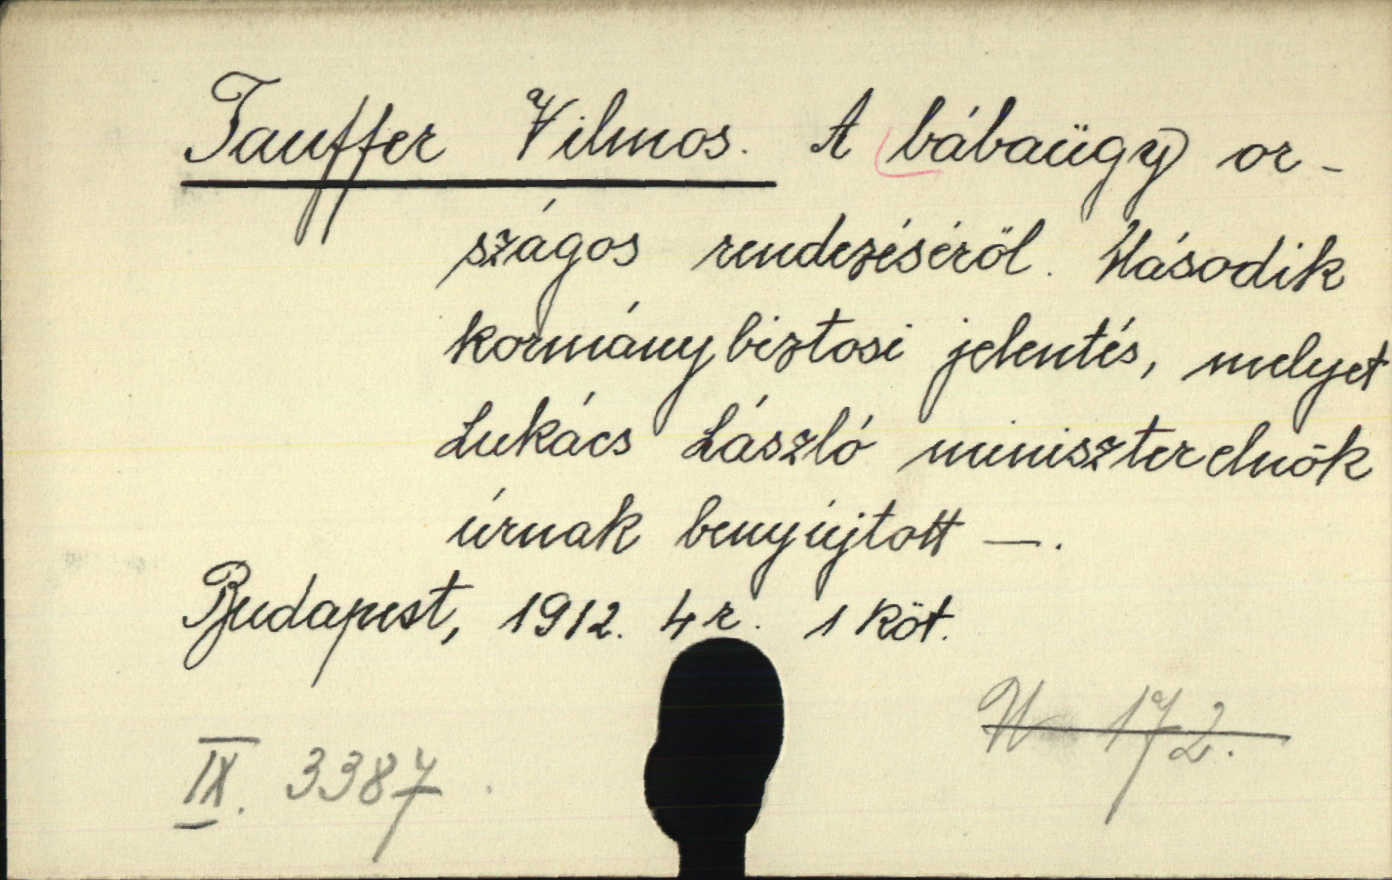 Tauffer Vilmos. A bábaügy or-
szágos rendezéséről. Második
kormánybiztosi jelentés, melyet
Lukács László miniszterelnök
úrnak benyújtott —.
Budapest, 1912. 4r. 1 köt.
172.
IX. 3387.